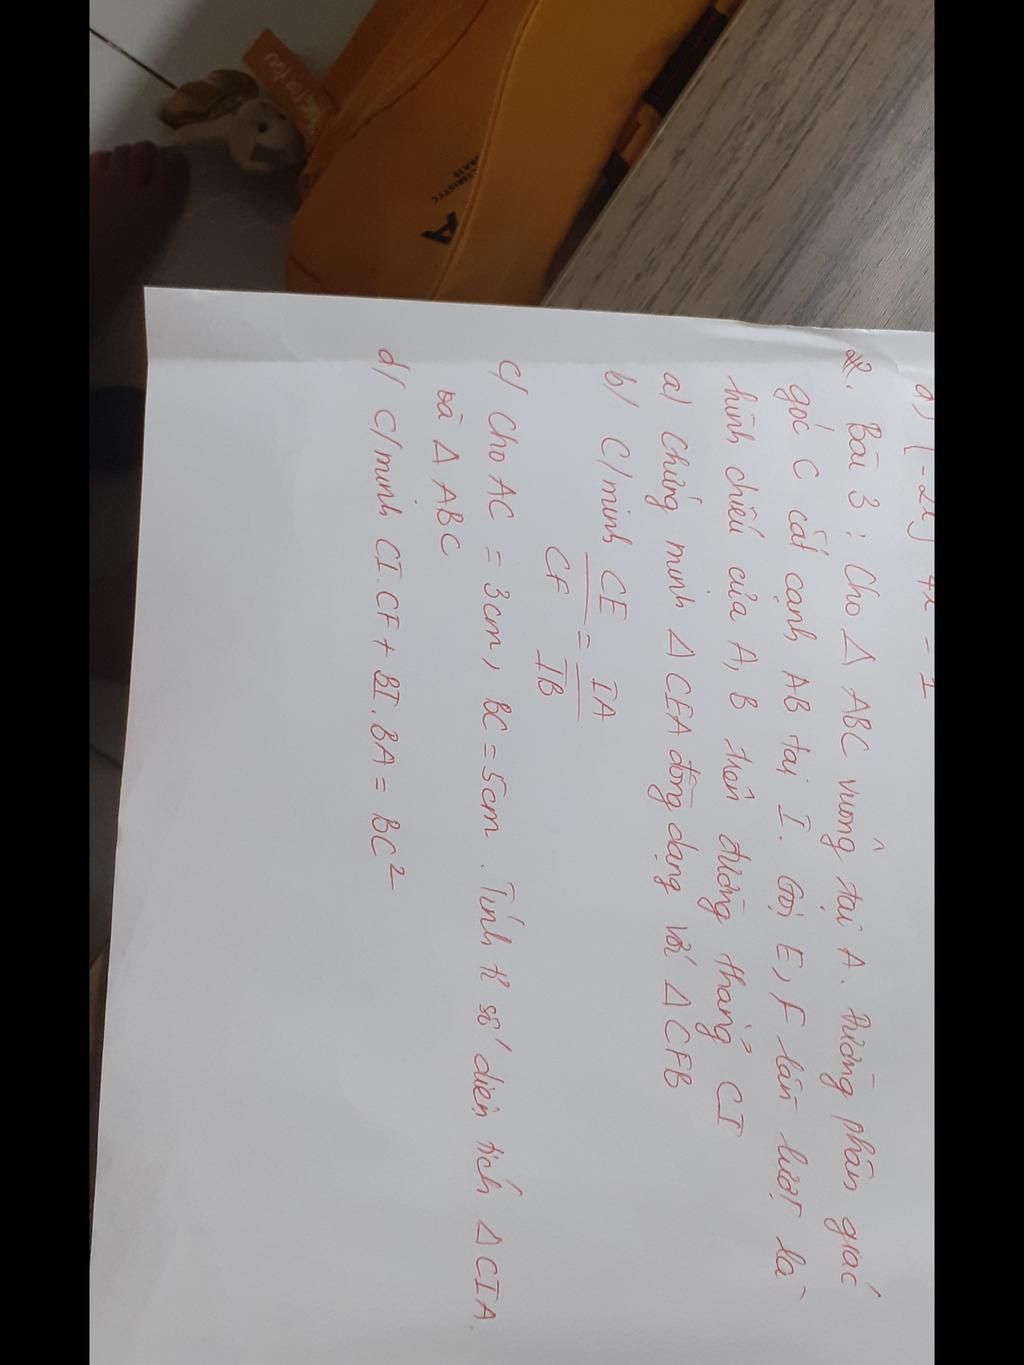 a) (-2x) 4x - 1
Bài 3 : Cho Δ ABC vuông tại A. Đường phân giác
góc C cắt cạnh AB tại I. Gọi E, F lần lượt là
hình chiếu của A, B trên đường thẳng CI
a) Chứng minh Δ CEA đồng dạng với Δ CFB
b/ C/minh CE/CF = IA/IB
c/ Cho AC = 3cm, BC = 5cm. Tính tỉ số diện tích Δ CIA
và Δ ABC
d/ C/minh CI.CF + BI.BA = BC²
A